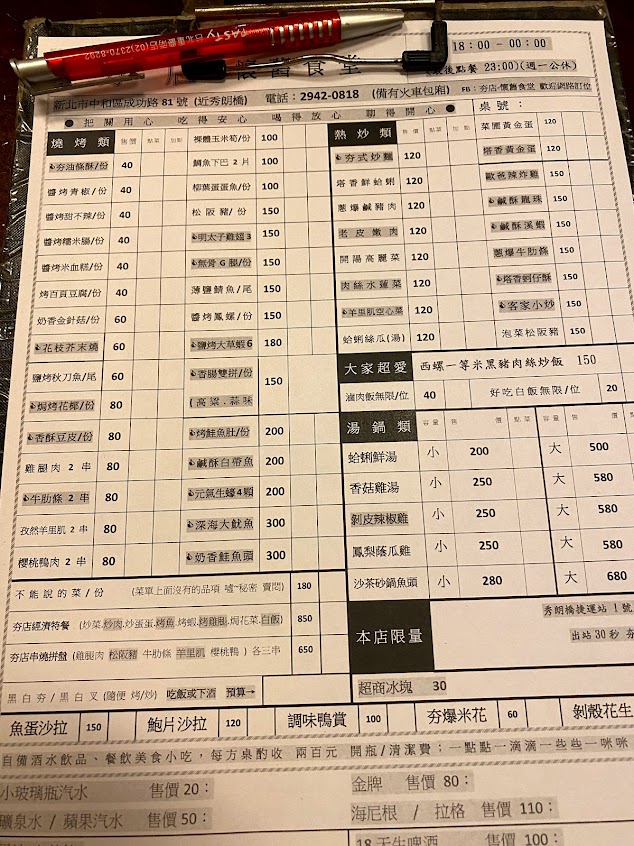 PASTY 台北
(02)2370-8292
18:00 - 00:00
懷舊食堂
後點餐 23:00)(週一公休)
新北市中和區成功路 81 號 (近秀朗橋) 電話：2942-0818 (備有火車包廂) FB：夯店·懷舊食堂 歡迎網路訂位
● 把關用心 吃得安心 喝得放心 聊得開心 ●
桌號：
燒烤類 售價 點菜 加點
夯油條酥/份 40
醬烤青椒/份 40
醬烤甜不辣/份 40
醬烤糯米腸/份 40
醬烤米血糕/份 40
烤百頁豆腐/份 40
奶香金針菇/份 60
花枝芥末燒 60
鹽烤秋刀魚/尾 60
焗烤花椰/份 80
香酥豆皮/份 80
雞腿肉 2 串 80
牛肋條 2 串 80
孜然羊里肌 2 串 80
櫻桃鴨肉 2 串 80
裸體玉米筍/份 100
鯛魚下巴 2 片 100
柳葉蛋蛋魚/份 100
松阪豬/份 150
明太子雞翅 3 150
無骨 G 腿/份 150
薄鹽鯖魚/尾 150
醬烤鳳螺/份 150
鹽烤大草蝦 6 180
香腸雙拼/份
(高粱.蒜味 150
烤鮭魚肚/份 200
鹹酥白帶魚 200
元氣生蠔 4 顆 200
深海大魷魚 300
奶香鮭魚頭 300
不能說的菜/份 (菜單上面沒有的品項 噓~秘密 賣悶) 180
夯店經濟特餐 (炒菜.炒肉.炒蛋蛋.烤魚.烤蝦.烤雞腿.焗花菜.白飯) 850
夯店串燒拼盤 (雞腿肉 松阪豬 牛肋條 羊里肌 櫻桃鴨) 各三串 650
黑白夯/黑白叉(隨便 烤/炒) 吃飯或下酒 預算→
熱炒類 售價 點菜 加點
夯式炒麵 120
塔香鮮蛤蜊 120
蔥爆鹹豬肉 120
老皮嫩肉 120
開陽高麗菜 120
肉絲水蓮菜 120
羊里肌空心菜 120
蛤蜊絲瓜(湯) 120
菜脯黃金蛋 120
塔香黃金蛋 120
歐爸辣炸雞 150
鹹酥龍珠 150
鹹酥溪蝦 150
蔥爆牛肋條 150
塔香蚵仔酥 150
客家小炒 150
泡菜松阪豬 150
大家超愛 西螺一等米黑豬肉絲炒飯 150
滷肉飯無限/位 40 好吃白飯無限/位 20
湯鍋類 容量 售價 點菜 容量 售價
蛤蜊鮮湯 小 200 大 500
香菇雞湯 小 250 大 580
剝皮辣椒雞 小 250 大 580
鳳梨蔭瓜雞 小 250 大 580
沙茶砂鍋魚頭 小 280 大 680
本店限量
秀朗橋捷運站 1號
出站 30秒
超商冰塊 30
魚蛋沙拉 150 鮑片沙拉 120 調味鴨賞 100 夯爆米花 60 剝殼花生
自備酒水飲品、餐飲美食小吃，每方桌酌收 兩百元 開瓶/清潔費；一點點一滴滴一些些一咪咪
小玻璃瓶汽水 售價 20：
礦泉水 / 蘋果汽水 售價 50：
金牌 售價 80：
海尼根 / 拉格 售價 110：
18 天生啤酒 售價 100：